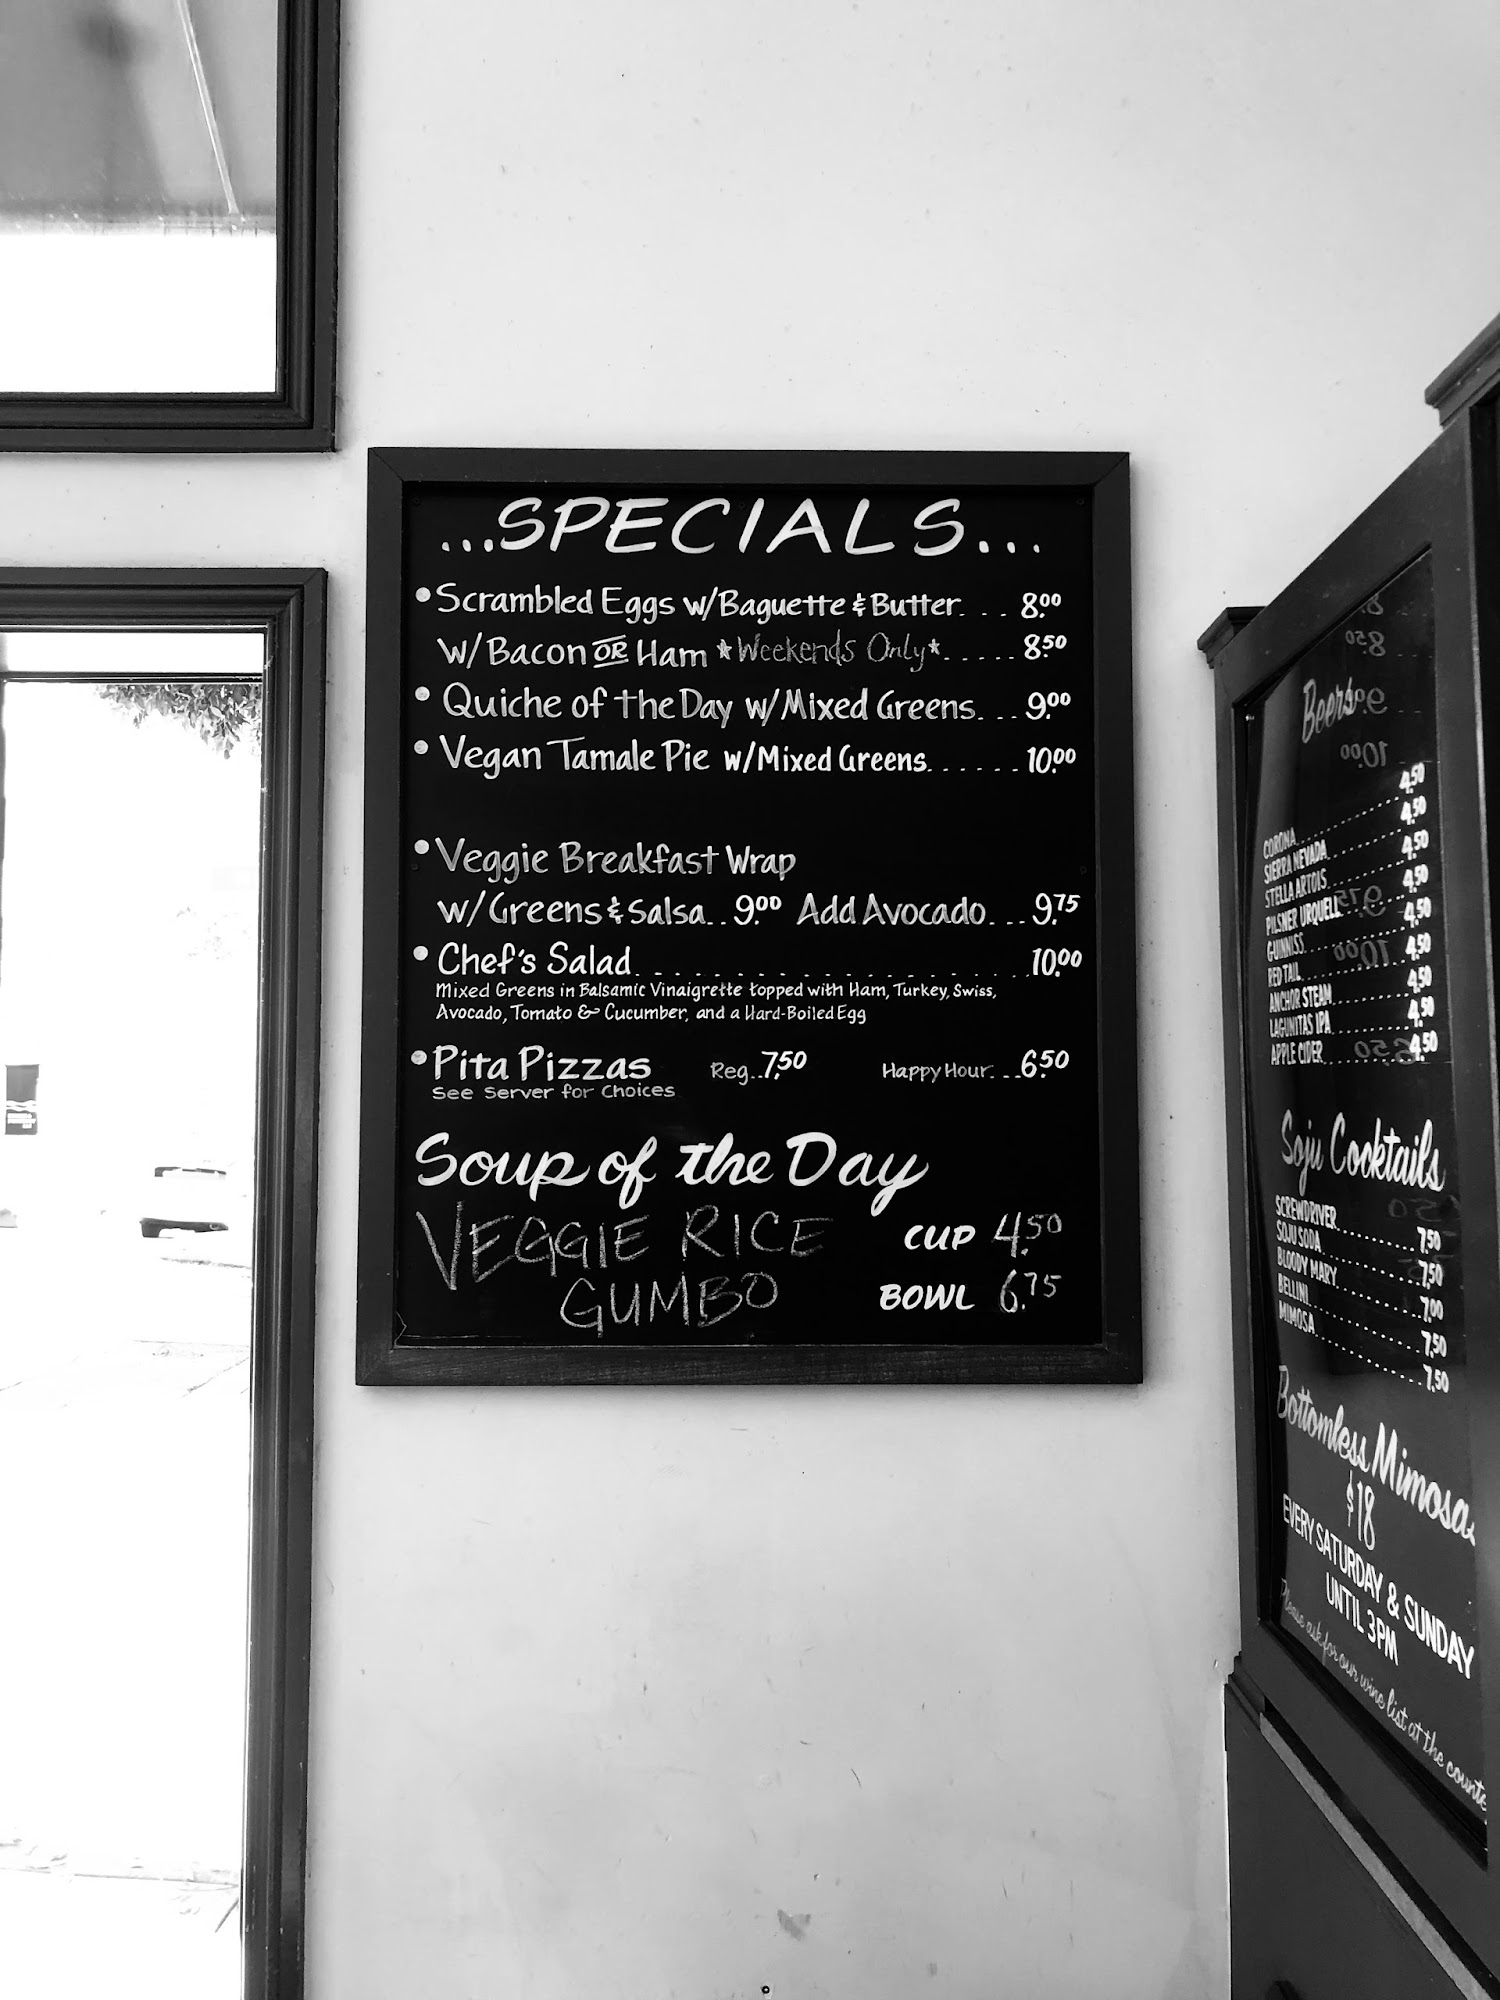 ...SPECIALS...
• Scrambled Eggs w/Baguette & Butter. . . 8.00
w/Bacon OR Ham *Weekends Only*. . . . . 8.50
• Quiche of the Day w/Mixed Greens. . . 9.00
• Vegan Tamale Pie w/Mixed Greens. . . . . . 10.00
• Veggie Breakfast Wrap
w/Greens & Salsa. . 9.00 Add Avocado. . . 9.75
• Chef's Salad. . . . . . . . . . . . . . . . . . . . 10.00
Mixed Greens in Balsamic Vinaigrette topped with Ham, Turkey, Swiss,
Avocado, Tomato & Cucumber, and a Hard-Boiled Egg
• Pita Pizzas Reg. . 7.50 Happy Hour. . . 6.50
See Server for Choices
Soup of the Day
VEGGIE RICE CUP 4.50
GUMBO BOWL 6.75
Beers
CORONA 4.50
SIERRA NEVADA 4.50
STELLA ARTOIS 4.50
PILSNER URQUELL 4.50
GUINNISS 4.50
RED TAIL 4.50
ANCHOR STEAM 4.50
LAGUNITAS IPA 4.50
APPLE CIDER 4.50
Soju Cocktails
SCREWDRIVER 7.50
SOJU SODA 7.50
BLOODY MARY 7.00
BELLINI 7.50
MIMOSA 7.50
Bottomless Mimosas
$18
EVERY SATURDAY & SUNDAY
UNTIL 3PM
Please ask for our wine list at the counte